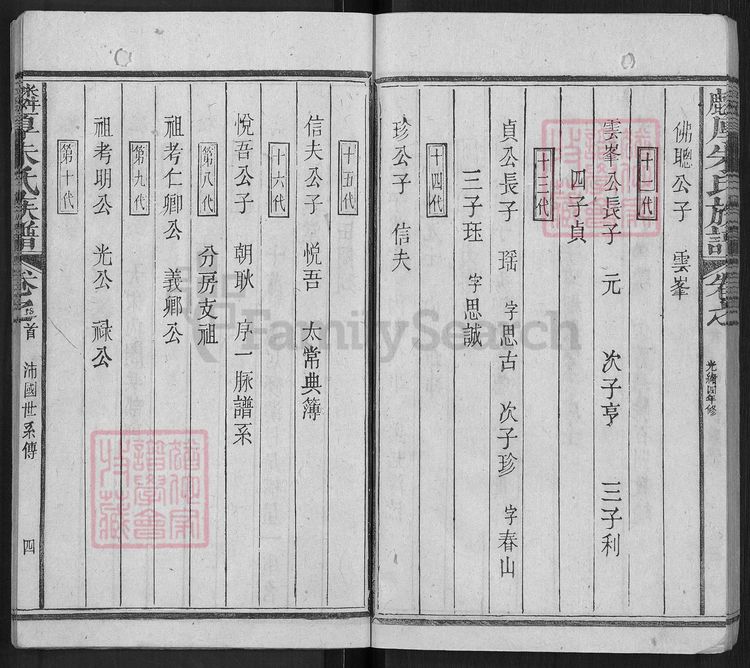 厚朱氏族譜 卷之
光緒四年修
佛聰公子 雲峯
十二代
雲峯公長子 元 次子亨 三子利
四子貞
十三代
貞公長子 瑶 字思古 次子珍 字春山
三子珏 字思誠
十四代
珍公子 信夫
十五代
信夫公子 悅吾 太常典簿
十六代
悅吾公子 朝耿 序一脉譜系
第八代 分房支祖
祖考仁卿公 義卿公
第九代
祖考明公 光公 禄公
第十代
厚朱氏族譜 卷之首 沛國世系傳 四
FamilySearch